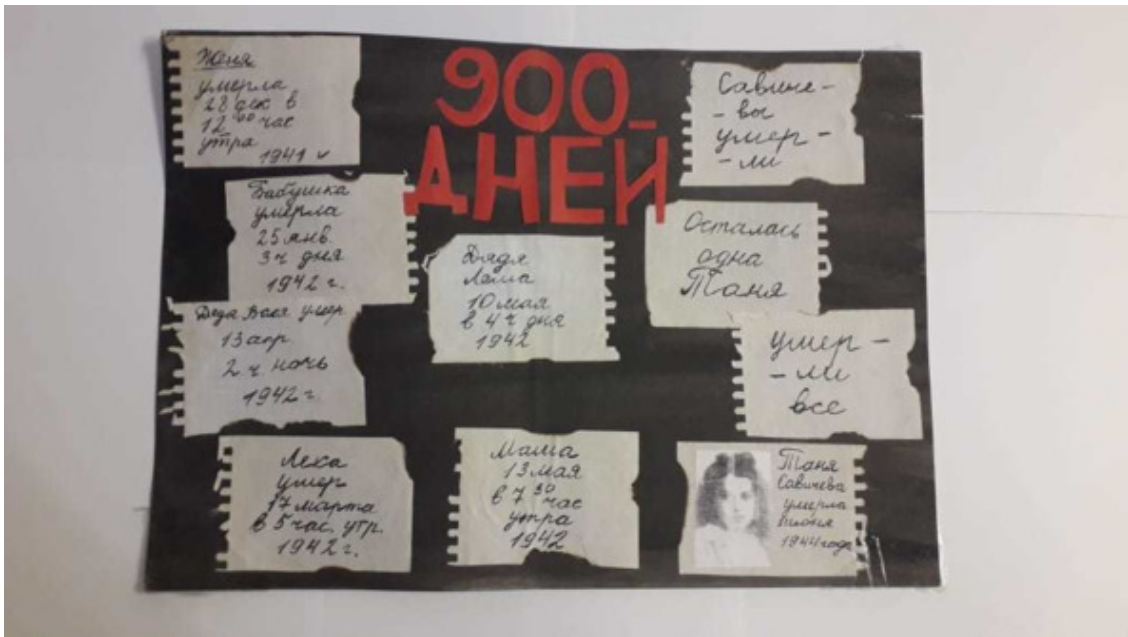 900
ДНЕЙ
Женя
умерла
28 дек в
12 00 час
утра
1941 г
Бабушка
умерла
25 янв.
3 ч дня
1942 г.
Деда Вася умер
13 апр
2 ч. ночь
1942 г.
Лека
умер
17 марта
в 5 час. утр.
1942 г.
Дядя
Леша
10 мая
в 4 ч дня
1942
Мама
13 мая
в 7 30 час
утра
1942
Савиче-
-вы
умер-
-ли
Осталась
одна
Таня
умер-
-ли
все
Таня
Савичева
умерла
1944 года